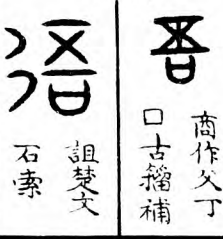 吾
商作父丁
口古籀補
詛楚文
石索